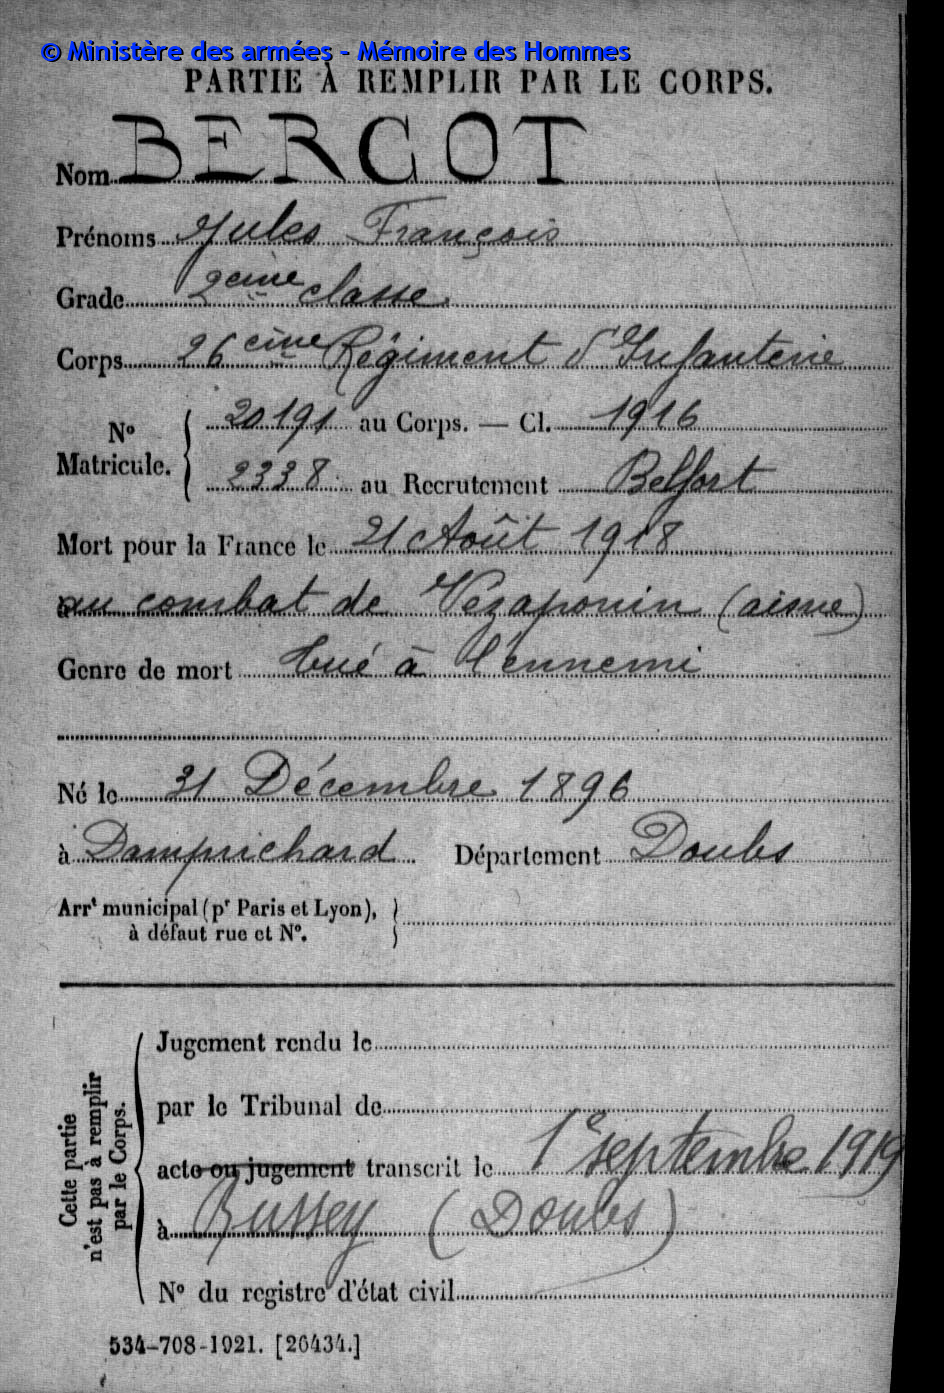 © Ministère des armées - Mémoire des Hommes
PARTIE À REMPLIR PAR LE CORPS.
Nom BERGOT
Prénoms Jules François
Grade 2eme classe
Corps 26eme Régiment d'Infanterie
N° Matricule. { 20191 au Corps. — Cl. 1916
2338 au Recrutement Belfort
Mort pour la France le 21 Août 1918
au combat de Vezaponin (aisne)
Genre de mort tué à l'ennemi
Né le 31 Décembre 1896
à Damprichard Département Doubs
Arrt municipal (pr Paris et Lyon),
à défaut rue et N°.
Cette partie
n'est pas à remplir
par le Corps.
Jugement rendu le
par le Tribunal de
acte ou jugement transcrit le 1e septembre 1919
à Russey (Doubs)
N° du registre d'état civil
534-708-1921. [26434.]